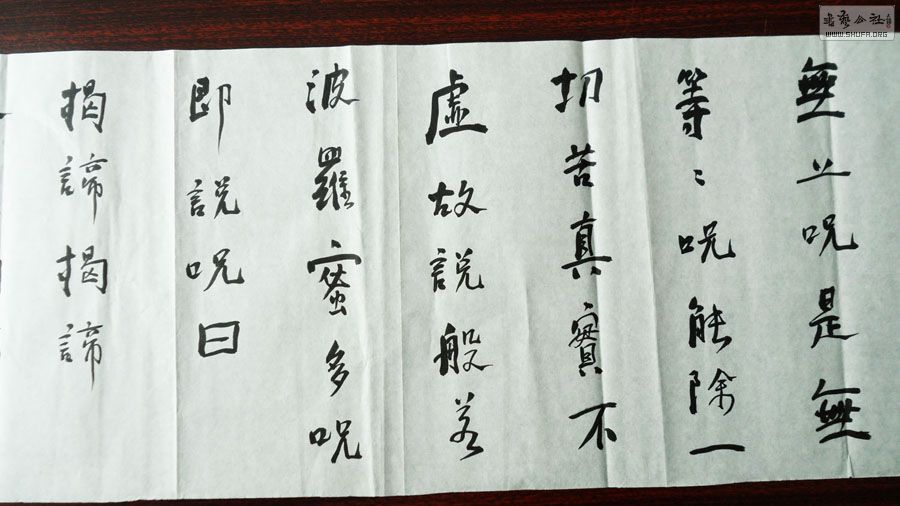 無上呪是無
等〻呪能除一
切苦真實不
虛故説般若
波羅蜜多呪
即説呪曰
揭諦揭諦
WWW.SHUFA.ORG